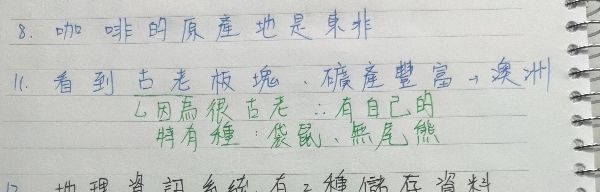 8. 咖啡的原產地是東非
11. 看到古老板塊、礦產豐富→澳洲
↳因為很古老 ∴有自己的
特有種：袋鼠、無尾熊
地理資訊系統有2種儲存資料